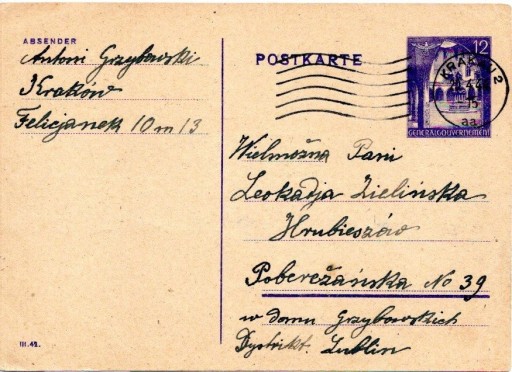 ABSENDER
Antoni Grzybowski
Kraków
Felicjanek 10 m 13
POSTKARTE
12
GENERALGOUVERNEMENT
KRAKAU 2
15
aa
Wielmożna Pani
Leokadja Zielińska
Hrubieszów
Pobereżańska No 39
w domu Grzybowskich
Dystrikt. Lublin
III.42.